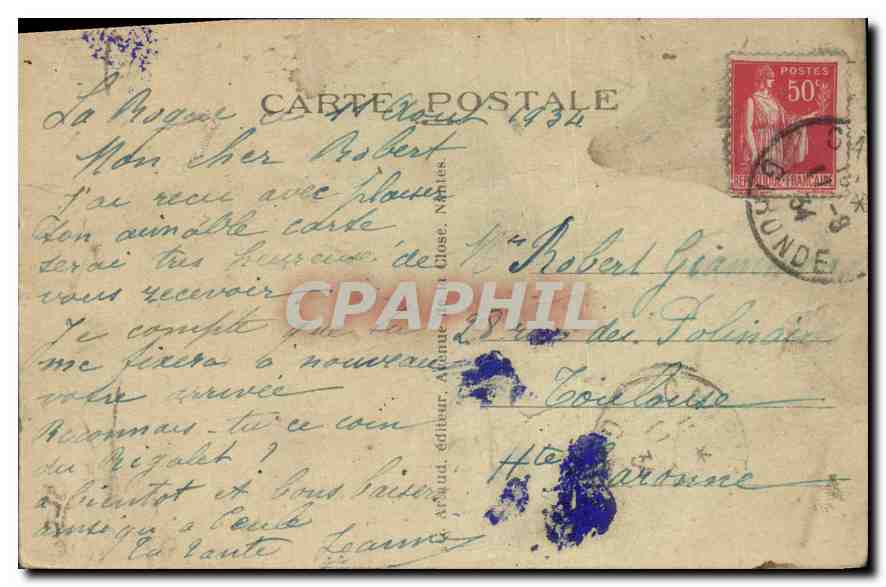 CARTE POSTALE
La Août 1934
Mon cher Robert
J'ai recu avec plaisir
ton aimable carte
serai très heureuse de
vous recevoir
Je compte que tu
me fixera a nouveau
votre arrivée
Reconnais-tu ce coin
du Rigalet ?
a bientot et bons baisers
ainsi qu'a
Ta tante Jeanne
Artaud, éditeur, Avenue de la Close, Nantes.
POSTES
50c
REPUBLIQUE FRANCAISE
GIRONDE
11-8
34
Mr Robert
28 rue des Polinaires
Toulouse
Hte Garonne
CPAPHIL